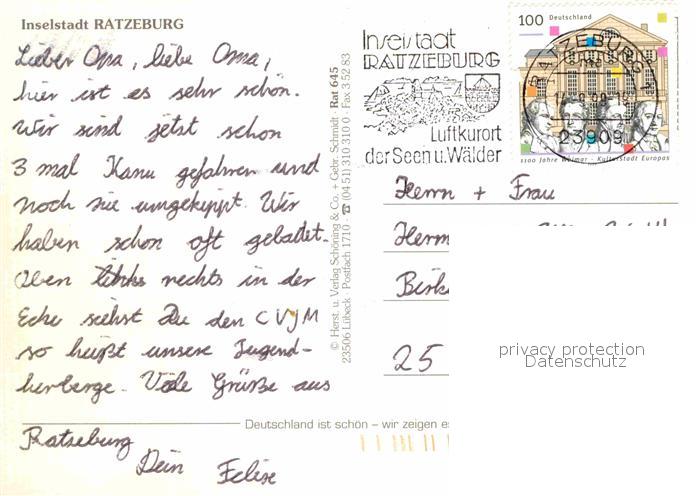 Inselstadt RATZEBURG
Lieber Opa, liebe Oma,
hier ist es sehr schön.
Wir sind jetzt schon
3 mal Kanu gefahren und
noch nie umgekippt. Wir
haben schon oft gebadet.
Oben links rechts in der
Ecke siehst Du den CVJM
so heißt unsere Jugend-
herberge. Viele Grüße aus
Ratzeburg
Dein Felix
© Herst. u. Verlag Schöning & Co. + Gebr. Schmidt · Rat 645
23506 Lübeck · Postfach 1710 · ☎ (04 51) 310 310 0 · Fax 3 52 83
Deutschland ist schön – wir zeigen es
Inselstadt
RATZEBURG
Luftkurort
der Seen u. Wälder
100 Deutschland
RATZEBURG 1
23909
1100 Jahre Weimar - Kulturstadt Europas
Herrn + Frau
Herm
Birk
25
privacy protection
Datenschutz